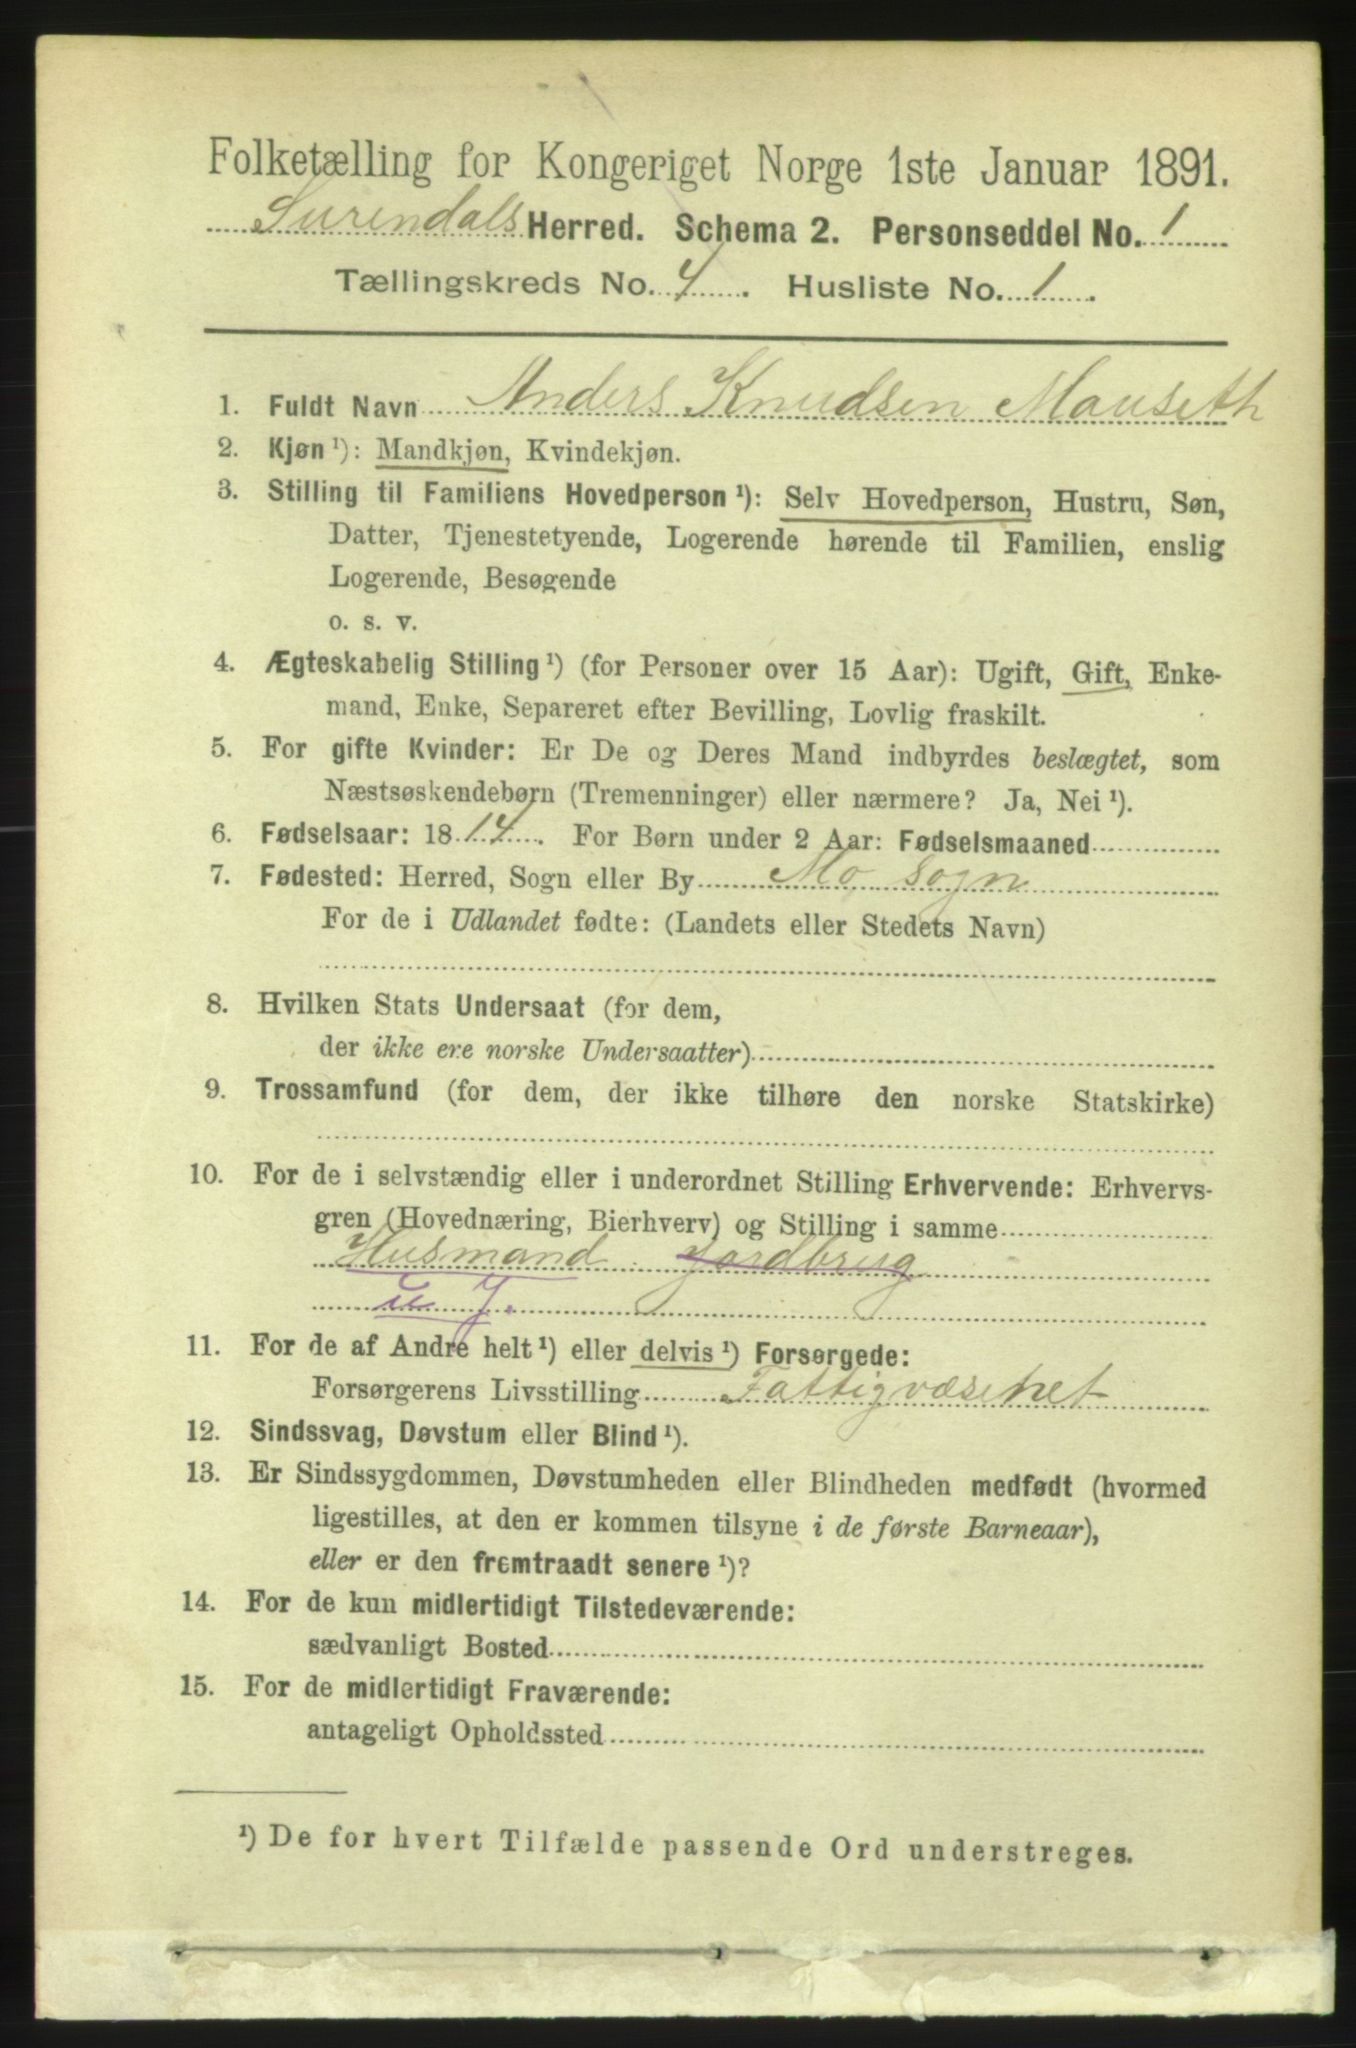 Folketælling for Kongeriget Norge 1ste Januar 1891.
Surendals Herred. Schema 2. Personseddel No. 1
Tællingskreds No. 4. Husliste No. 1.
1. Fuldt Navn Anders Knudsen Mauseth
2. Kjøn ¹): Mandkjøn, Kvindekjøn.
3. Stilling til Familiens Hovedperson ¹): Selv Hovedperson, Hustru, Søn,
Datter, Tjenestetyende, Logerende hørende til Familien, enslig
Logerende, Besøgende
o. s. v.
4. Ægteskabelig Stilling ¹) (for Personer over 15 Aar): Ugift, Gift, Enke-
mand, Enke, Separeret efter Bevilling, Lovlig fraskilt.
5. For gifte Kvinder: Er De og Deres Mand indbyrdes beslægtet, som
Næstsøskendebørn (Tremenninger) eller nærmere? Ja, Nei ¹).
6. Fødselsaar: 1814. For Børn under 2 Aar: Fødselsmaaned
7. Fødested: Herred, Sogn eller By Mo sogn
For de i Udlandet fødte: (Landets eller Stedets Navn)
8. Hvilken Stats Undersaat (for dem,
der ikke ere norske Undersaatter)
9. Trossamfund (for dem, der ikke tilhøre den norske Statskirke)
10. For de i selvstændig eller i underordnet Stilling Erhvervende: Erhvervs-
gren (Hovednæring, Bierhverv) og Stilling i samme
Husmand Jordbrug
u J.
11. For de af Andre helt ¹) eller delvis ¹) Forsørgede:
Forsørgerens Livsstilling Fattigvæsenet
12. Sindssvag, Døvstum eller Blind ¹).
13. Er Sindssygdommen, Døvstumheden eller Blindheden medfødt (hvormed
ligestilles, at den er kommen tilsyne i de første Barneaar),
eller er den fremtraadt senere ¹)?
14. For de kun midlertidigt Tilstedeværende:
sædvanligt Bosted
15. For de midlertidigt Fraværende:
antageligt Opholdssted
¹) De for hvert Tilfælde passende Ord understreges.